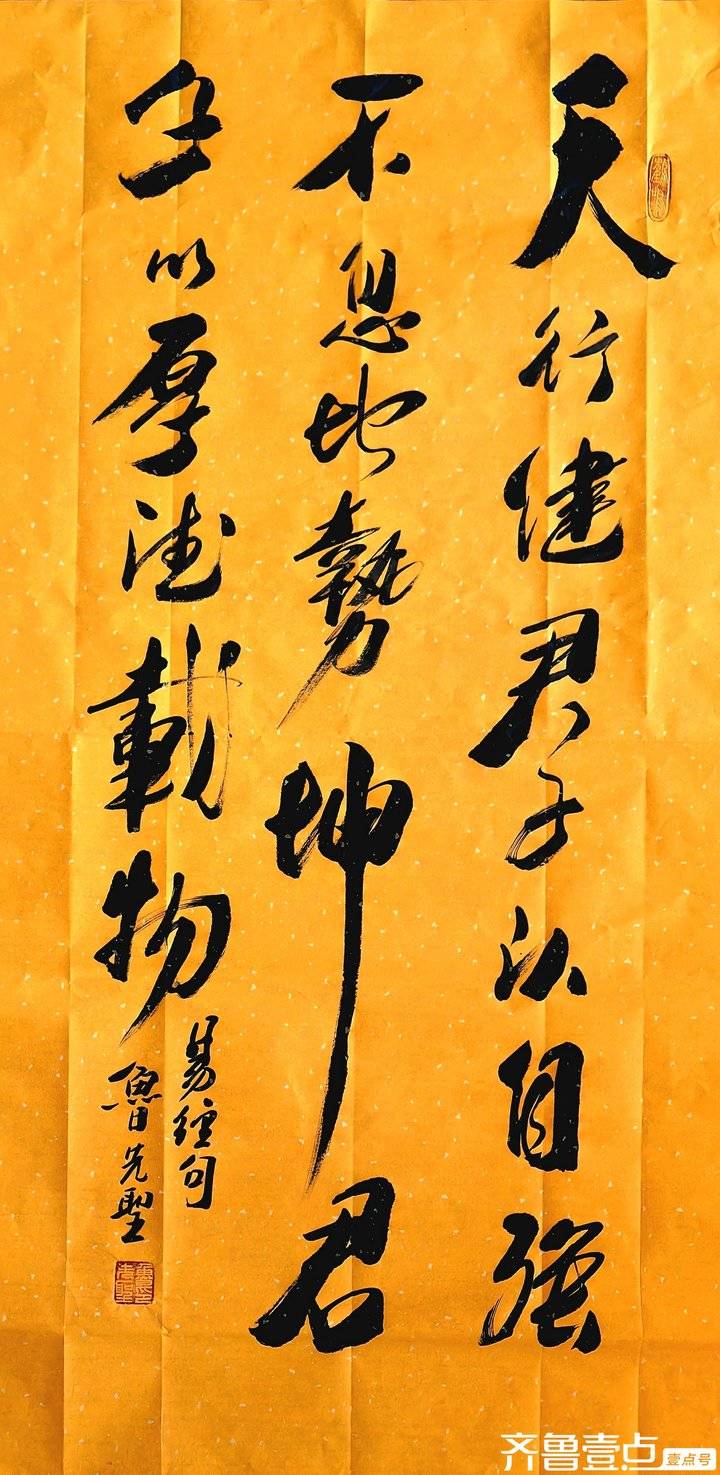 天行健君子以自強
不息地勢坤君
子以厚德載物
易經句
魯先聖
齐鲁壹点 壹点号